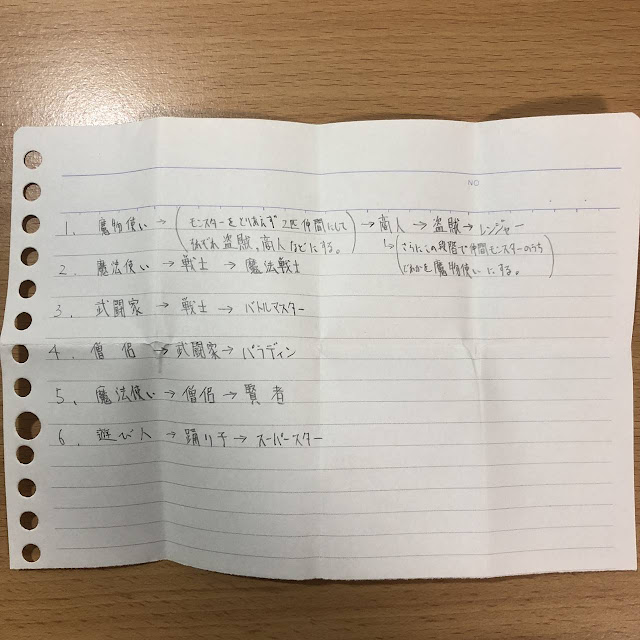 NO
1. 魔物使い → (モンスターをとりあえず2匹仲間にして → 商人 → 盗賊 → レンジャー
それぞれ盗賊、商人などにする。) ↳(さらにこの段階で仲間モンスターのうち
2. 魔法使い → 戦士 → 魔法戦士 どれかを魔物使いにする。)
3. 武闘家 → 戦士 → バトルマスター
4. 僧侶 → 武闘家 → パラディン
5. 魔法使い → 僧侶 → 賢者
6. 遊び人 → 踊り子 → スーパースター